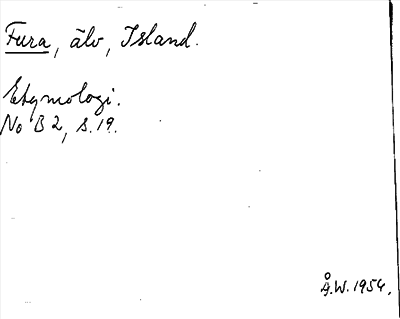 Fura, älv, Island.
Etymologi.
No B 2, s. 19.
Å.W. 1954.